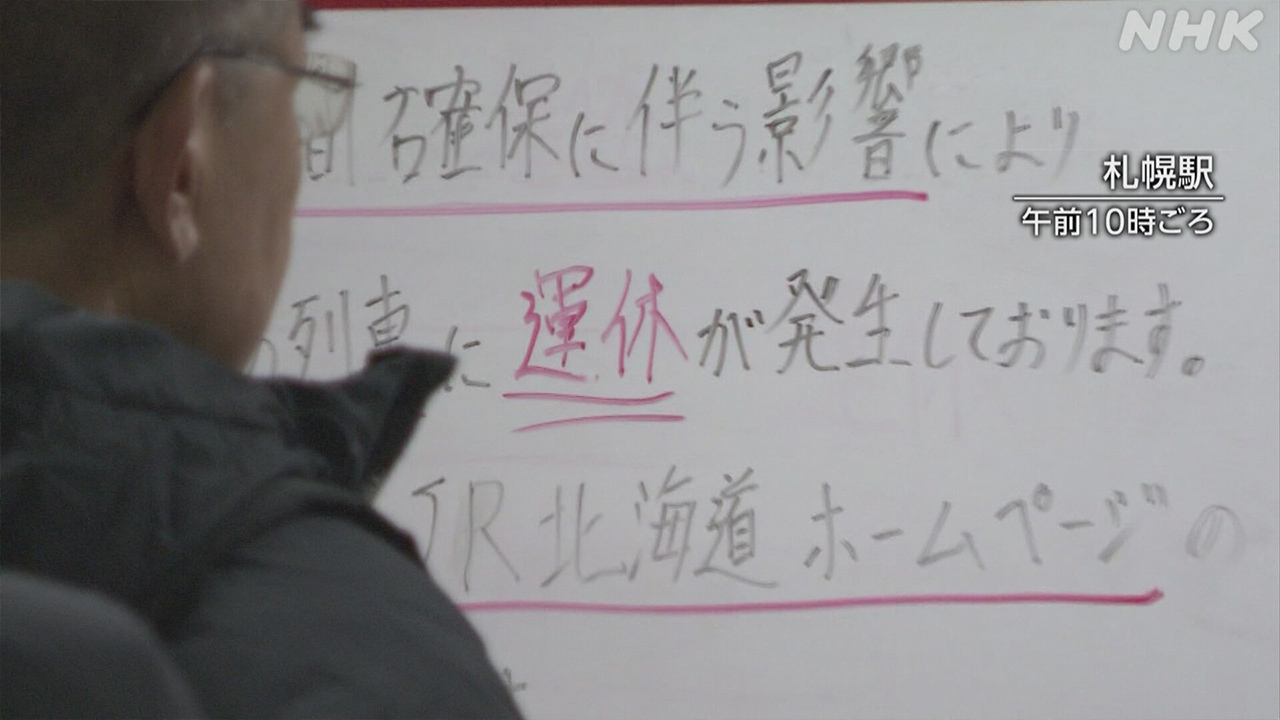 NHK
確保に伴う影響により
札幌駅
午前10時ごろ
列車に運休が発生しております。
JR北海道ホームページの